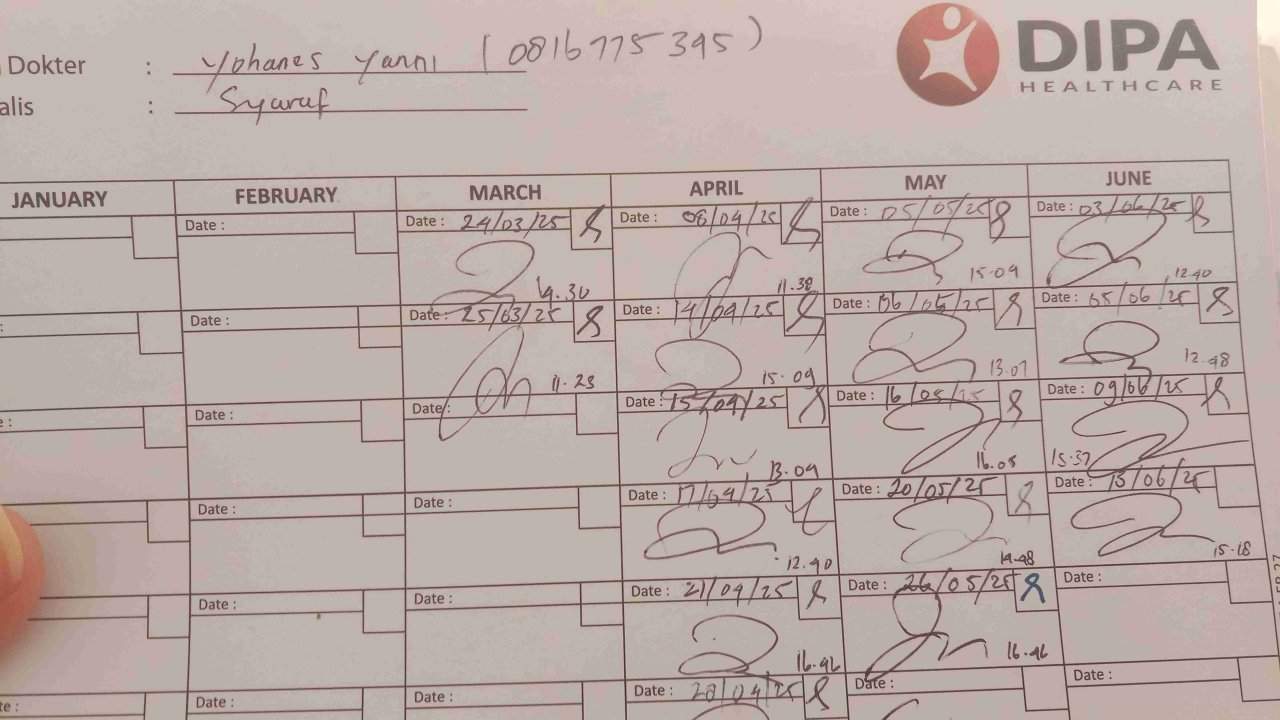 Dokter : Yohanes Yanni (0816775395)
alis : Syaraf
DIPA
HEALTHCARE
JANUARY FEBRUARY MARCH APRIL MAY JUNE
Date : Date : 24/03/25 Date : 08/04/25 Date : 05/05/25 Date : 03/06/25
14.30 11.38 15.09 12.40
Date : Date : 25/03/25 Date : 14/04/25 Date : 06/05/25 Date : 05/06/25
11.23 15.09 13.07 12.48
Date : Date : Date : 15/04/25 Date : 16/05/25 Date : 09/06/25
13.09 16.05 15.37
Date : Date : Date : 17/04/25 Date : 20/05/25 Date : 13/06/25
12.40 14.48 15.18
Date : Date : Date : 21/04/25 Date : 26/05/25 Date :
16.46 16.46
Date : Date : Date : 28/04/25 Date : Date :